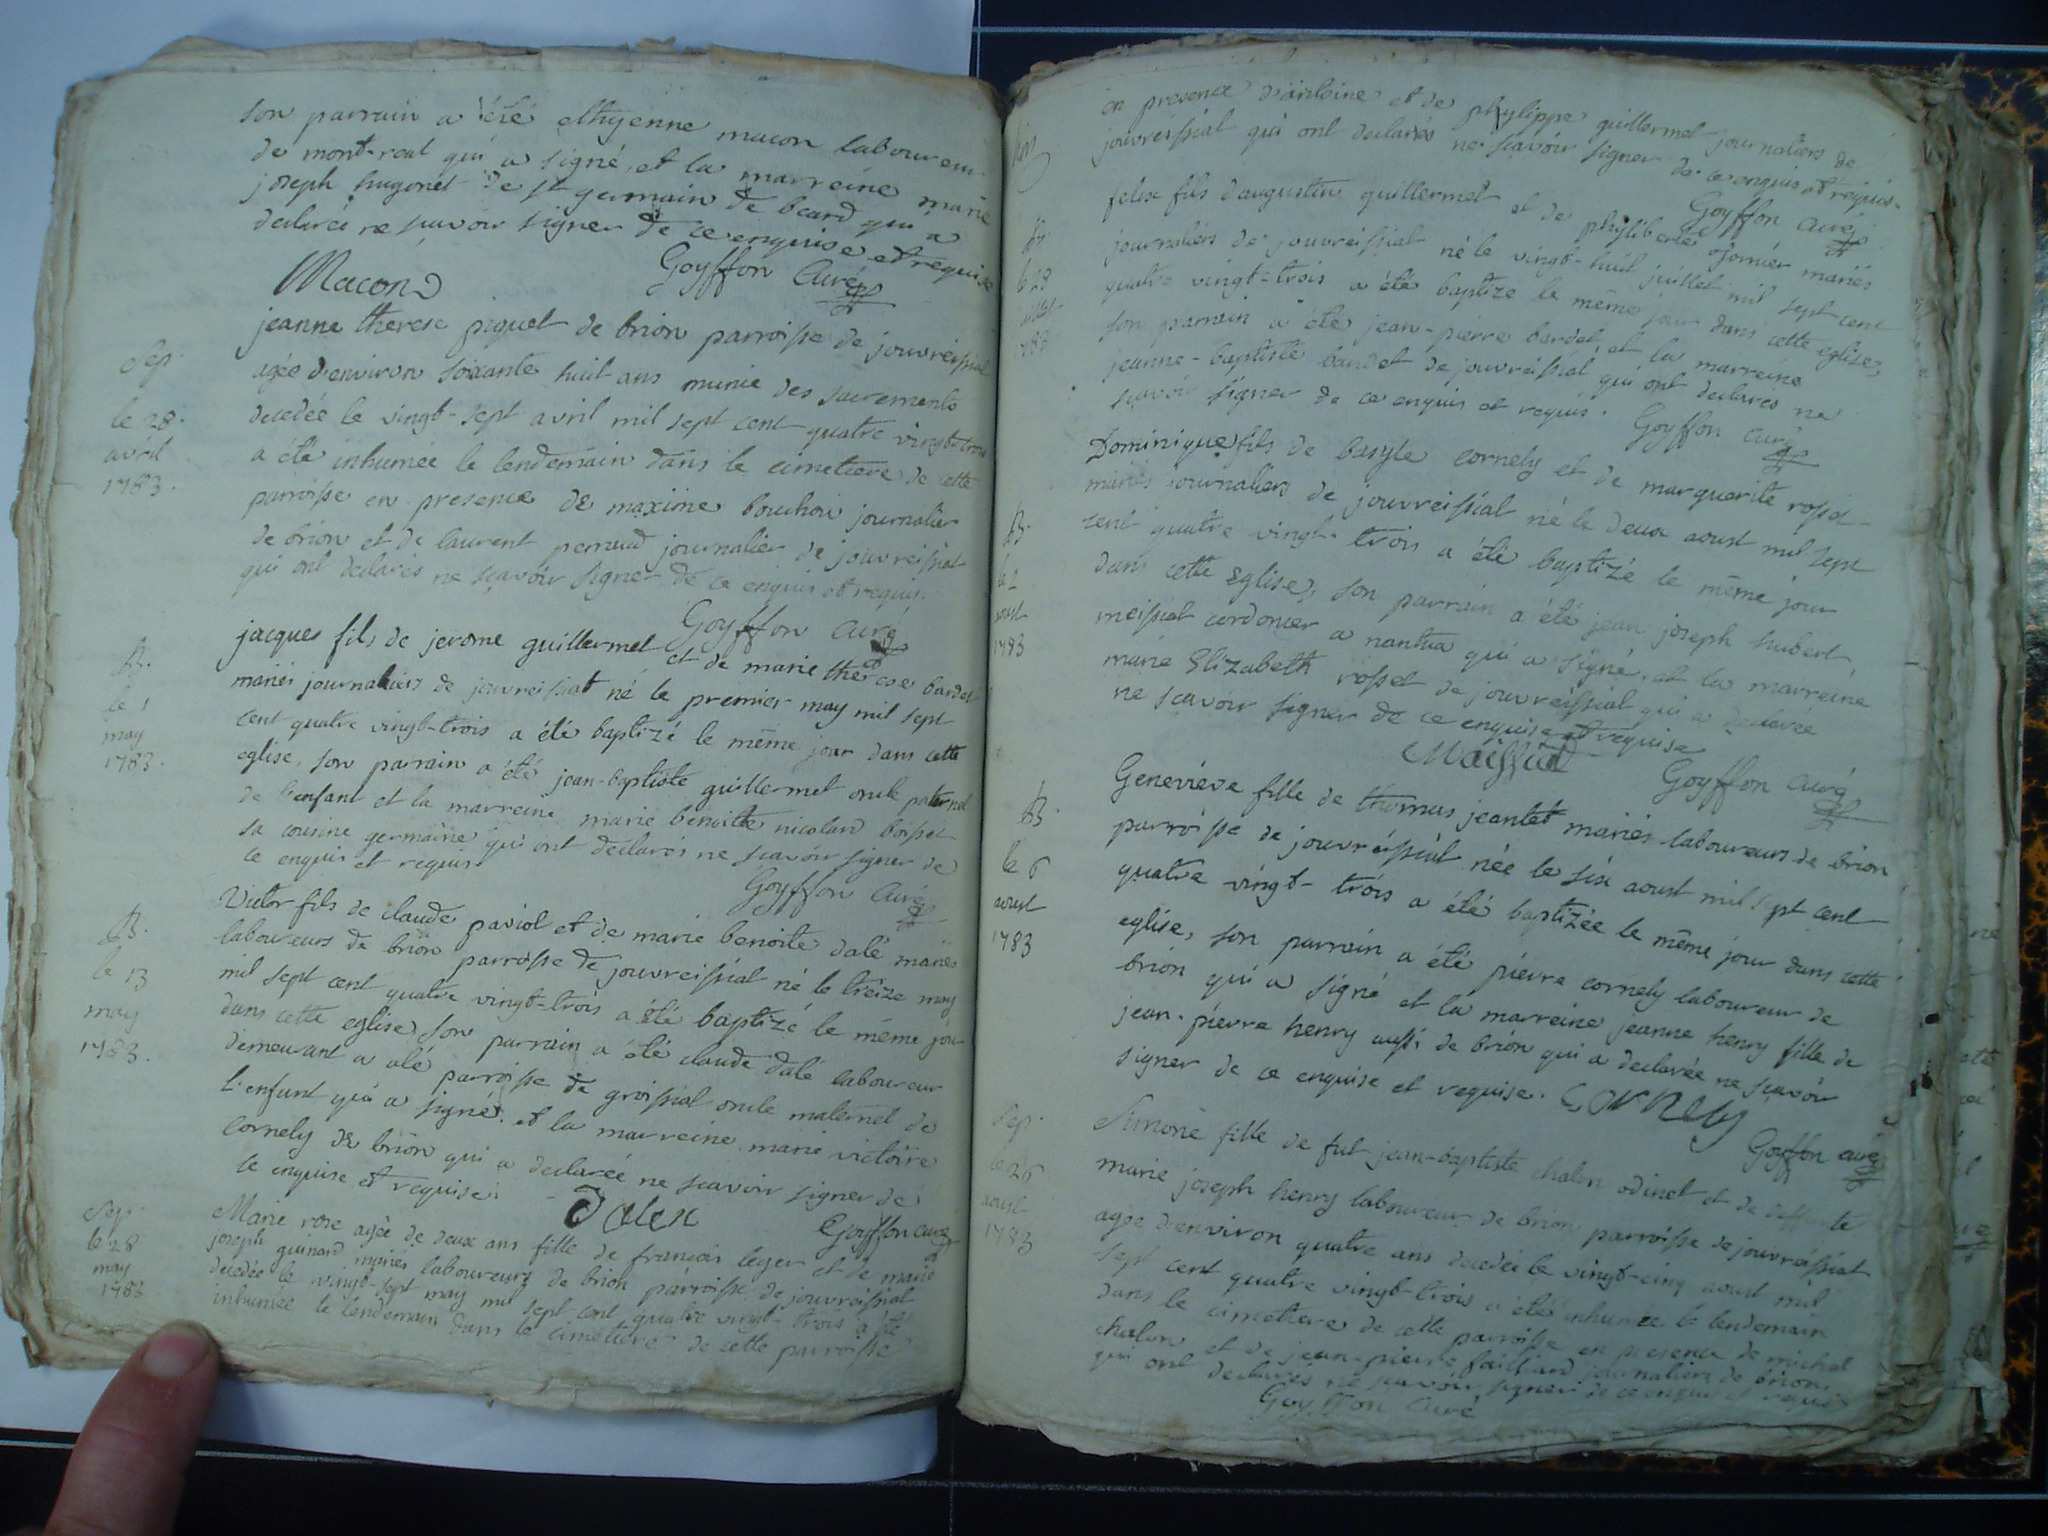 son parrain a été ethyenne macon laboureur
de mont-real qui a signé, et la marreine marie
joseph hugonet de st germain de beard qui a
declarée ne scavoir signer de ce enquise et requise
Macond
Goyffon curé
Sep.
le 28.
avril
1783.
jeanne therese piquet de brion parroisse de jouvreissiat
agée d'environ soixante huit ans munie des sacrements
decedée le vingt-sept avril mil sept cent quatre vingt-trois
a été inhumée le lendemain dans le cimetiere de cette
parroisse en presence de maxime bouchou journalier
de brion et de laurent perraud journalier de jouvreissiat
qui ont declarés ne scavoir signer de ce enquis et requis.
Goyffon curé
B.
le 1
may
1783.
jacques fils de jerome guillermet et de marie therese bardet
mariés journaliers de jouvreissiat né le premier may mil sept
cent quatre vingt-trois a été baptizé le même jour dans cette
eglise, son parrain a été jean-baptiste guillermet oncle paternel
de l'enfant et la marreine marie benoitte nicolard boisset
sa cousine germaine qui ont declares ne scavoir signer de
ce enquis et requis
Goyffon curé
B.
le 13
may
1783.
Victor fils de claude paviol et de marie benoite dalé mariés
laboureurs de brion parroisse de jouvreissiat né le treize may
mil sept cent quatre vingt-trois a été baptizé le même jour
dans cette eglise, son parrain a été claude dalé laboureur
demeurant a alé parroisse de groissiat oncle maternel de
l'enfant qui a signé. et la marreine marie victoire
cornely de brion qui a declarée ne scavoir signer de
ce enquise et requise.
Dalex
Goyffon curé
Sep.
le 28
may
1783
Marie rose agée de deux ans fille de francois leger et de marie
joseph guinard mariés laboureurs de brion parroisse de jouvreissiat
decedée le vingt-sept may mil sept cent quatre vingt-trois a été
inhumée le lendemain dans le cimetiere de cette parroisse
en presence d'antoine et de phylippe guillermet journaliers de
jouvreissiat qui ont declarés ne scavoir signer de ce enquis et requis.
Goyffon curé
B.
le 28
1783
felix fils d'augustin guillermet et de phyliberte
journaliers de jouvreissiat né le vingt-huit juillet mil sept cent
quatre vingt-trois a été baptizé le même jour dans cette eglise,
son parrain a été jean-pierre bardet, et la marreine
jeanne-baptiste bardet de jouvreissiat qui ont declares ne
scavoir signer de ce enquis et requis.
Goyffon curé
B.
le 2
aoust
1783
Dominique fils de basyle cornely et de marguerite rosset
mariés journaliers de jouvreissiat né le deux aoust mil sept
cent quatre vingt-trois a été baptizé le même jour
dans cette eglise, son parrain a été jean joseph hubert
meissiat cordonier a nantua qui a signé, et la marreine
marie Elizabeth rosset de jouvreissiat qui a declarée
ne scavoir signer de ce enquise et requise
Maissiat
Goyffon curé
B.
le 6
aoust
1783
Geneviève fille de thomas jeantet mariés laboureurs de brion
parroisse de jouvreissiat née le six aoust mil sept cent
quatre vingt-trois a été baptizée le même jour dans cette
eglise, son parrain a été pierre cornely laboureur de
brion qui a signé et la marreine jeanne henry fille de
jean-pierre henry aussi de brion qui a declarée ne scavoir
signer de ce enquise et requise.
Cornely
Goyffon curé
Sep.
le 26
aoust
1783
Simone fille de fut jean-baptiste chalon odinet et de deffunte
marie joseph henry laboureur de brion parroisse de jouvreissiat
agée d'environ quatre ans decedée le vingt-cinq aoust mil
sept cent quatre vingt-trois a été inhumée le lendemain
dans le cimetiere de cette parroisse en presence de michel
chalon et de jean-pierre journaliers de brion
qui ont declarés ne scavoir signer de ce enquis et requis
Goyffon curé